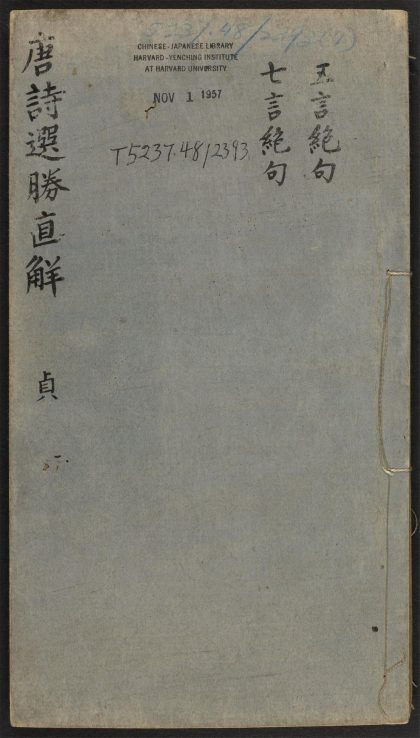 唐詩選勝直解 貞
五言絕句
七言絕句
CHINESE-JAPANESE LIBRARY
HARVARD-YENCHING INSTITUTE
AT HARVARD UNIVERSITY
NOV 1 1957
T5237.48/2393